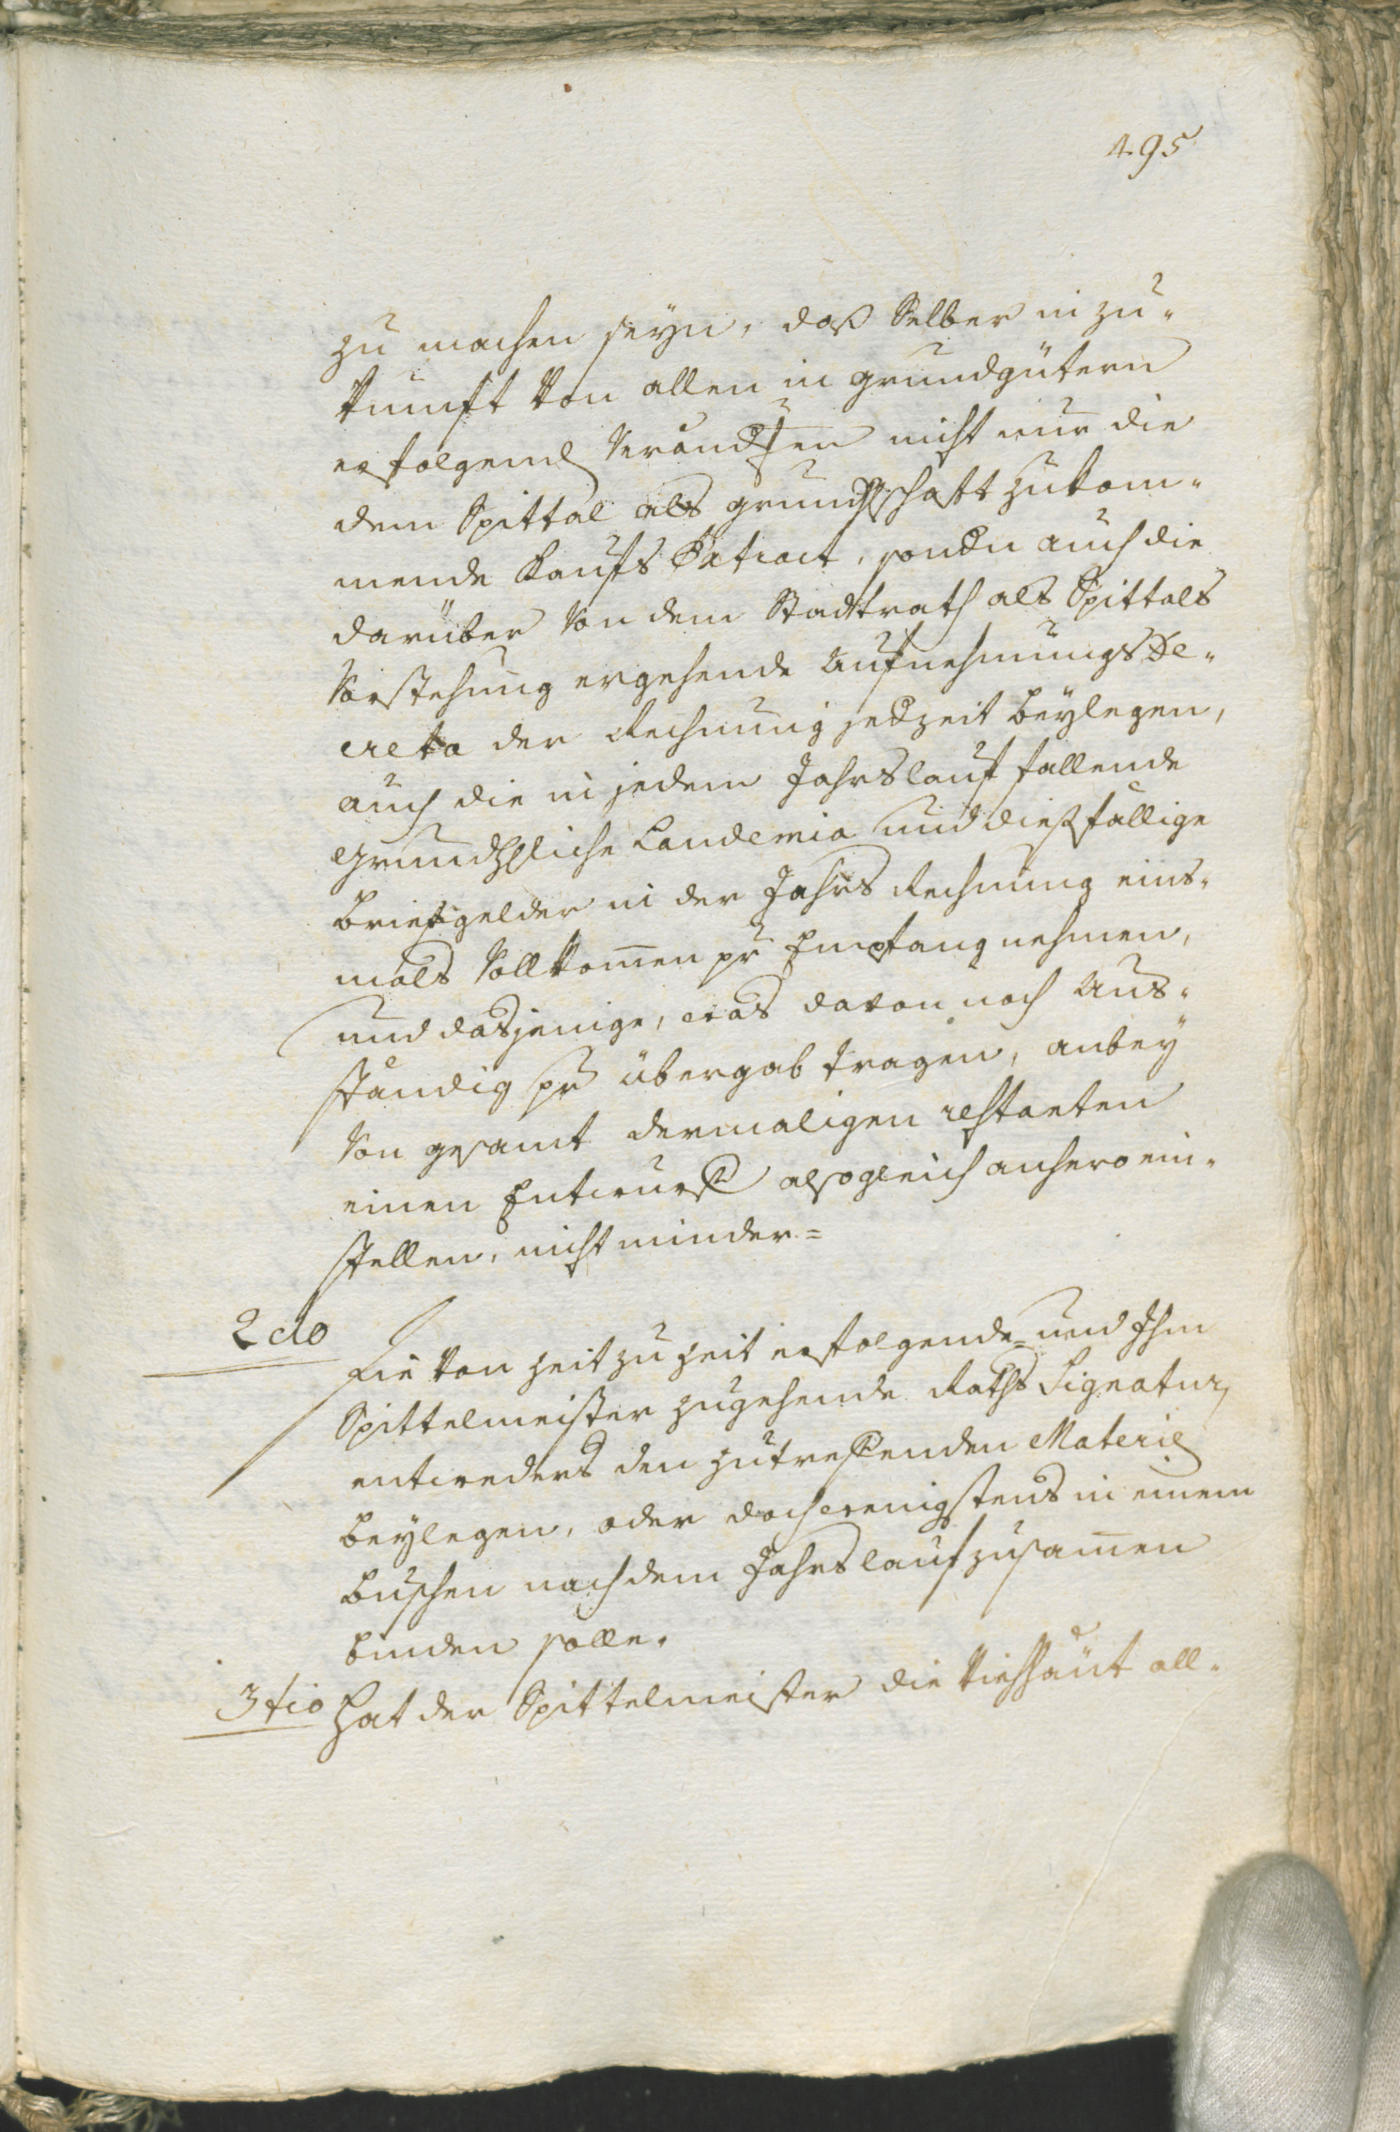 495
zu machen seyn, daß Selber in zu-
kunft von allen in grundgütern
erfolgend Verändgen nicht nur die
dem Spittal als grundhschaft zukom-
mende Kaufs Extract, sondn auch die
darüber von dem Stadtrath als Spittals
Vorstehung ergehende Aufnehmungs De-
creta der Rechnung jedzeit beylegen,
auch die in jedem Jahrslauf fallende
grundhliche Laudemia und dießfällige
briefgelder in der Jahrs Rechnung eins-
mals Vollkom̄en pr Empfang nehmen,
und dasjenige, was davon noch Aus-
ständig pr übergab tragen, anbey
Von gesamt dermaligen restanten
einen Entwurff alsogleich anhero ein-
stellen, nicht minder=
2do
Die von Zeit zu Zeit erfolgende= und Ihm
Spittelmeister zugehende Raths Signatur,
entweders den zutreffenden Materie
beylegen, oder doch wenigstens in einem
buschen nach dem Jahrslauf zusam̄en
binden solle.
3tio Hat der Spittelmeister die Viehhäut all-